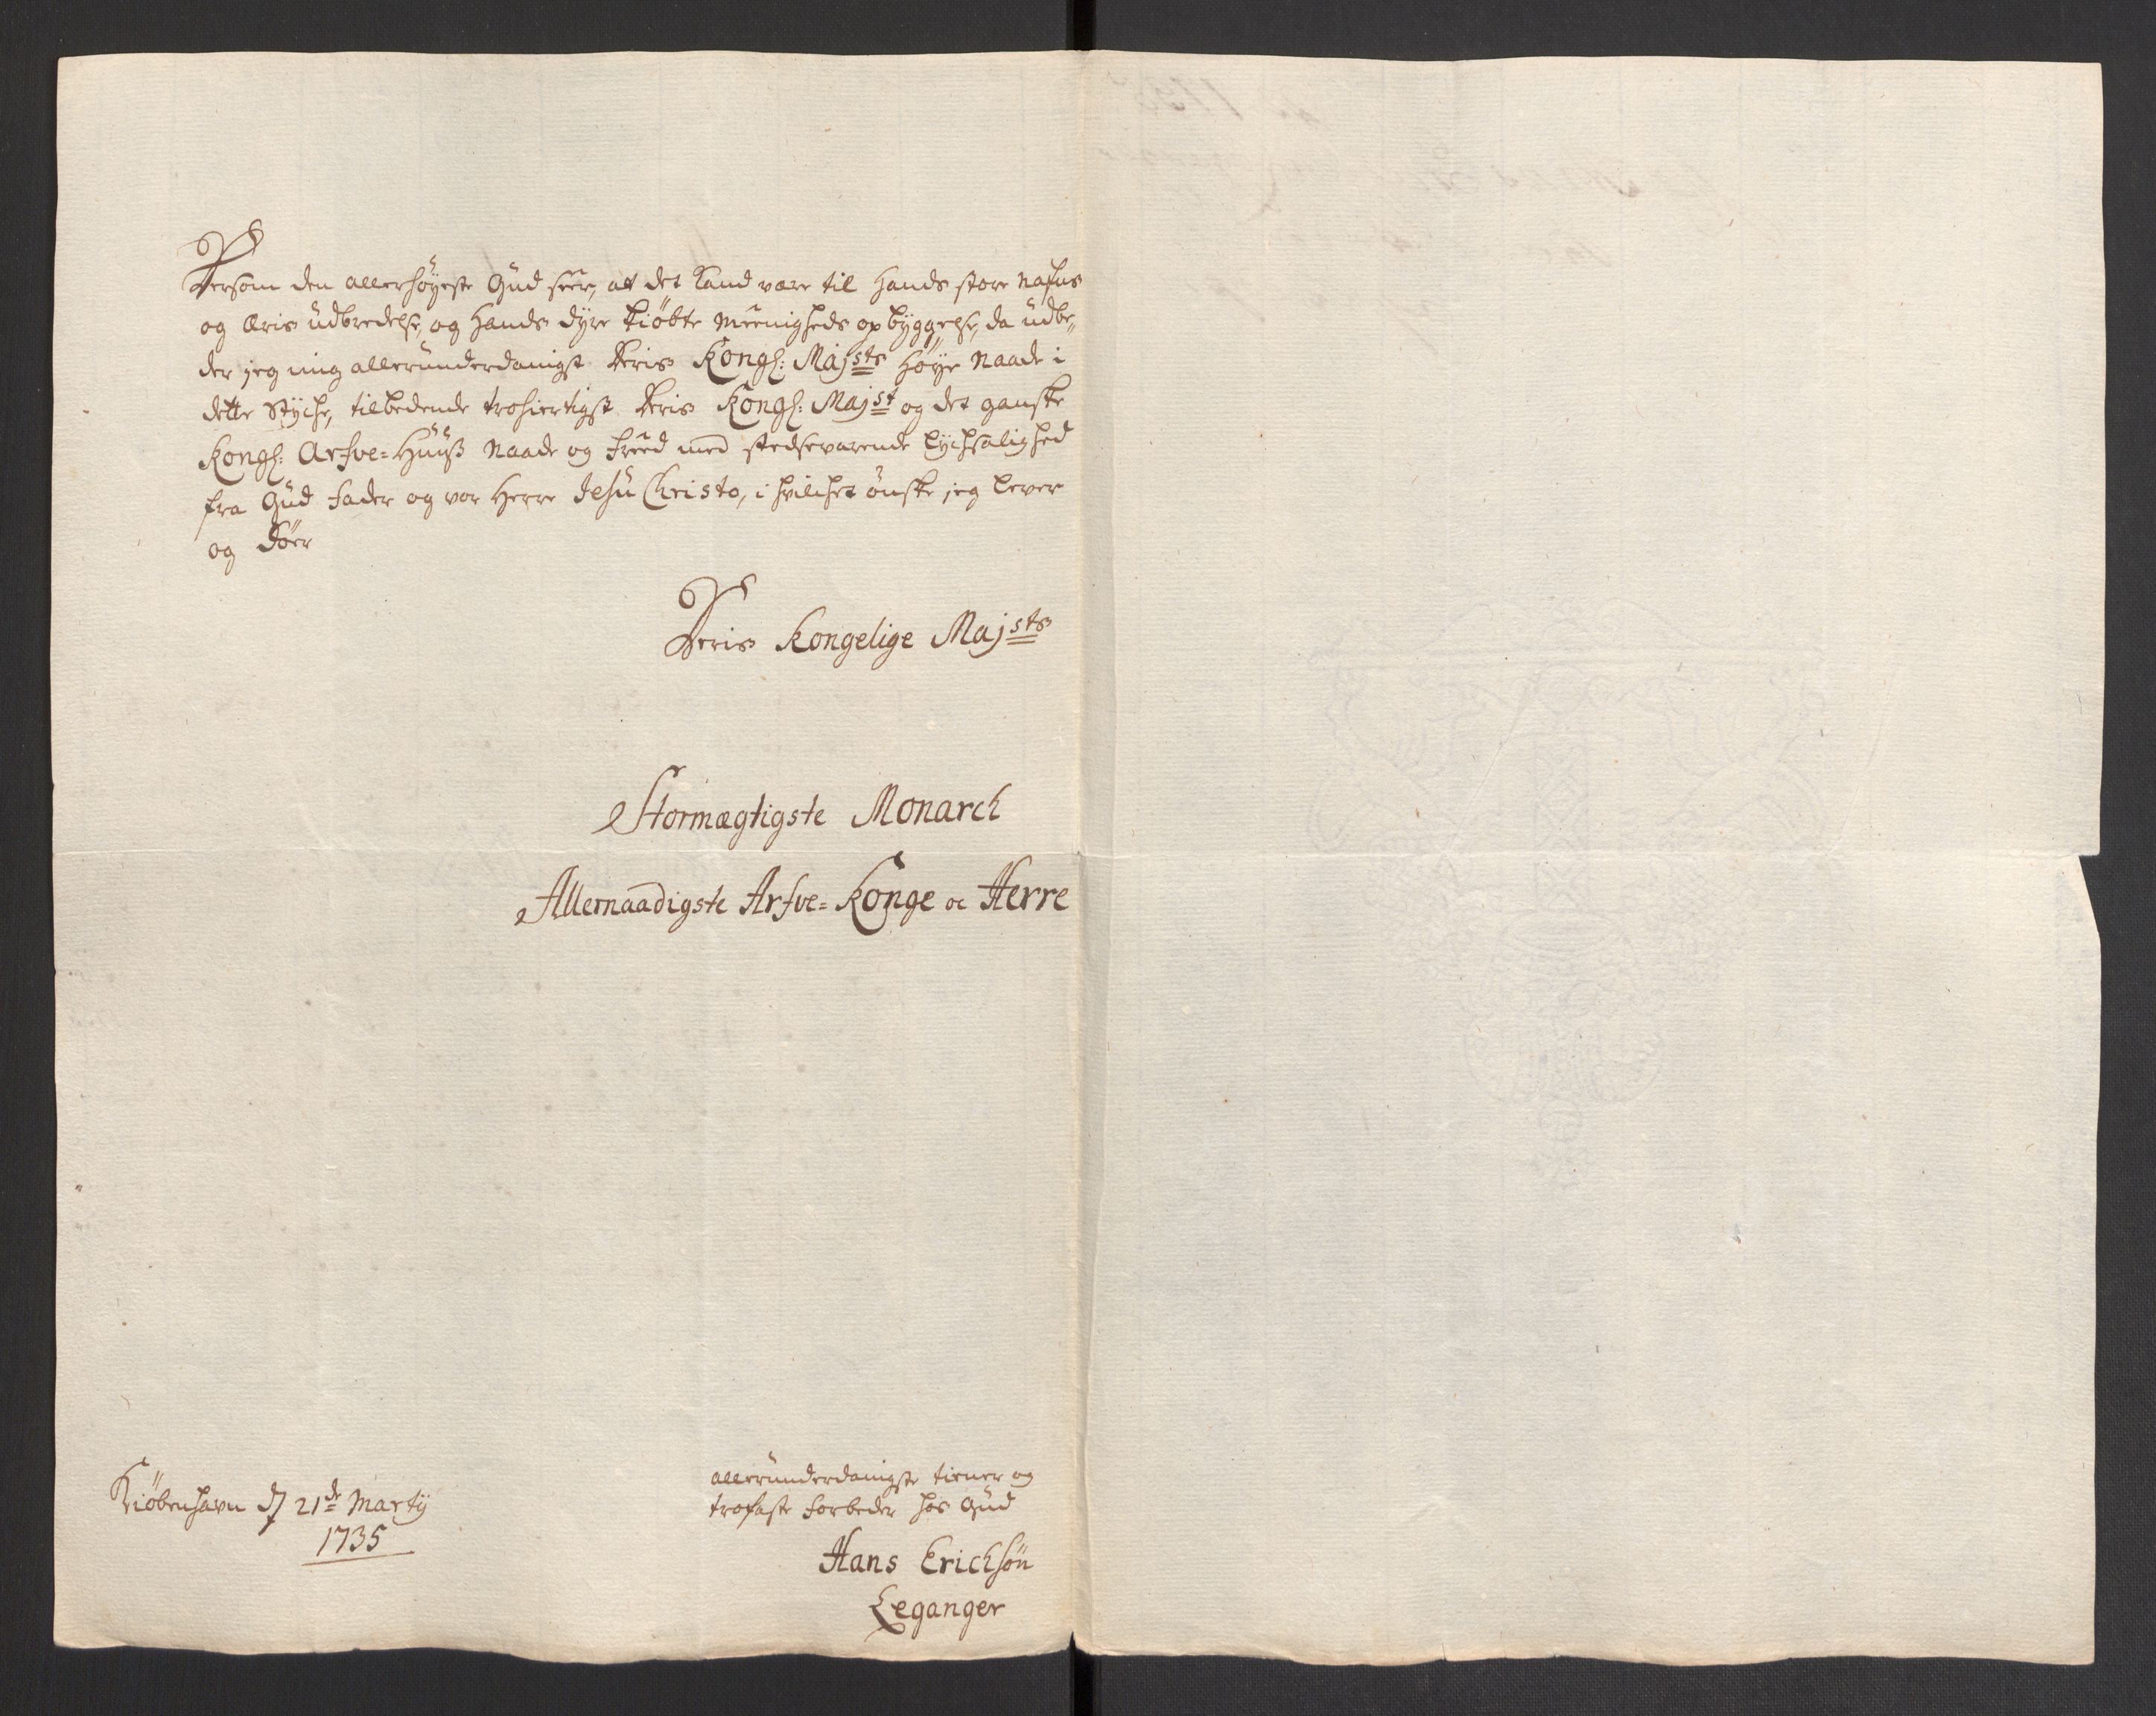 Dersom den allerhöyeste Gud seer, at det kand være til Hands store Nafns
og Æris udbredelse, og Hands dyre kiöbte Meenigheds opbyggelse, da udbe„
der jeg mig allerunderdanigst Deris Kongl: Majsts höye Naade i
dette Styche, tilbedende trohiertigst Deris Kongl: Majst og det gandske
Kongl: Arfve=Huuß Naade og Freed med stedsevarende Lychsalighed
fra Gud Fader og vor Herre Jesu Christo, i hvilchet önske jeg lever
og Döer
Deris Kongelige Majsts
Stormægtigste Monarch
Allernaadigste Arfve=Konge oc Herre
Kiöbenhavn d 21de Martij
1735
allerunderdanigste tiener og
trofaste Forbeder hos Gud
Hans Erichsön
Leganger